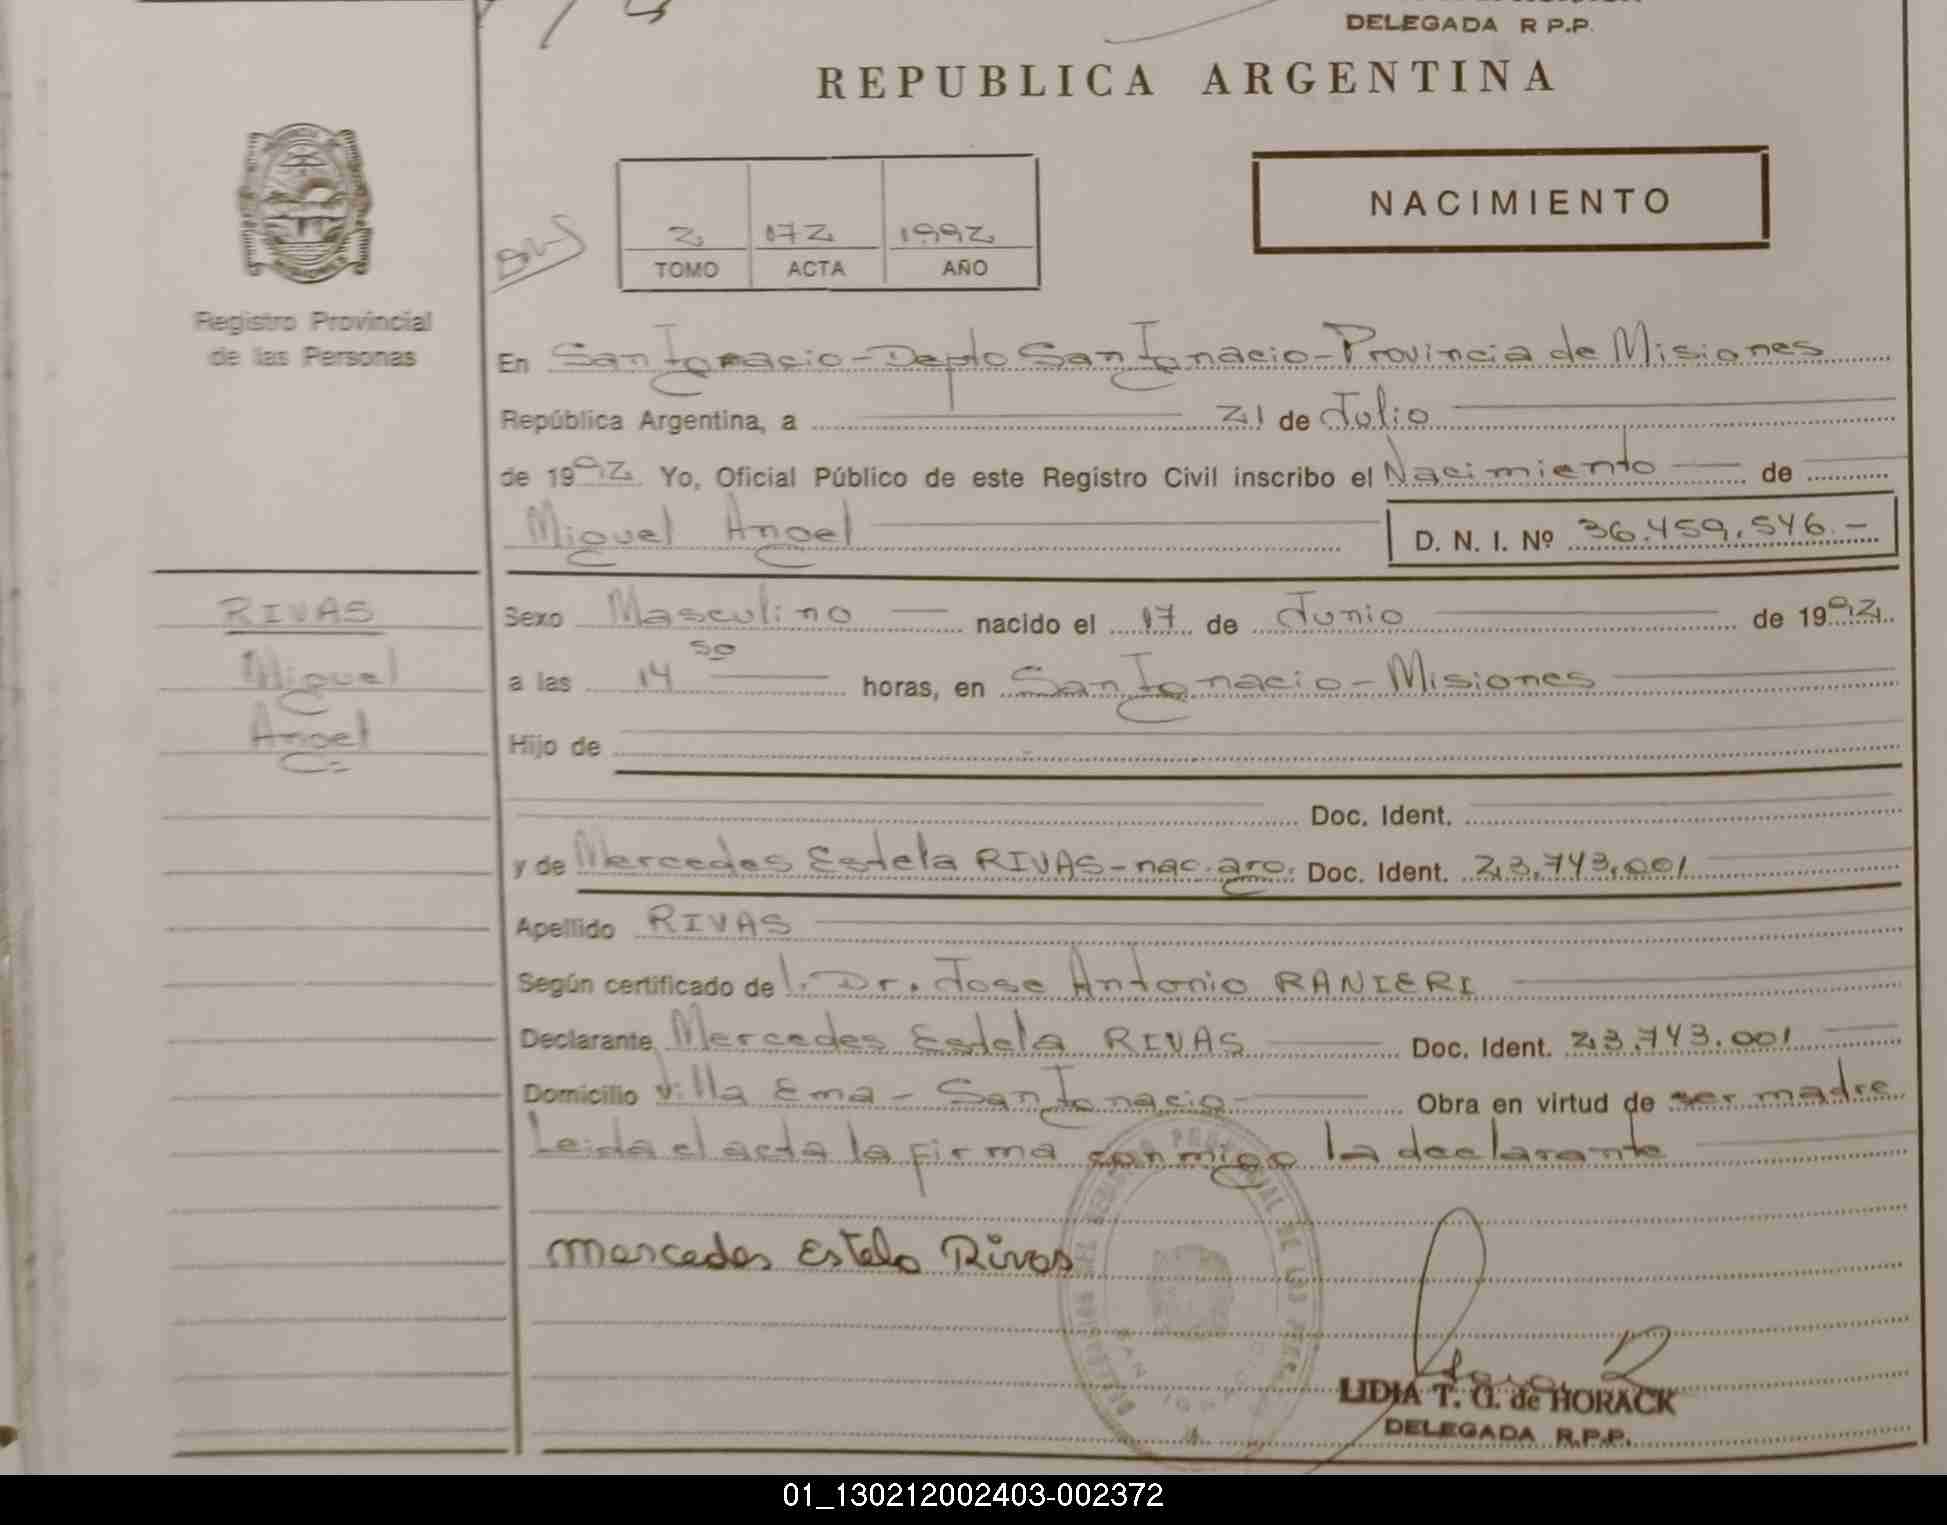 DELEGADA R P.P.
REPUBLICA ARGENTINA
NACIMIENTO
2 172 1992
TOMO ACTA AÑO
Registro Provincial
de las Personas
En San Ignacio - Depto San Ignacio - Provincia de Misiones
República Argentina, a 21 de Julio
de 1992 Yo, Oficial Público de este Registro Civil inscribo el Nacimiento de
Miguel Angel D. N. I. Nº 36.459.546.-
RIVAS
Miguel
Angel
Sexo Masculino nacido el 17 de Junio de 1992
a las 14 50 horas, en San Ignacio - Misiones
Hijo de
Doc. Ident.
y de Mercedes Estela RIVAS - nac. arg. Doc. Ident. 23.743.001
Apellido RIVAS
Según certificado de l. Dr. Jose Antonio RANIERI
Declarante Mercedes Estela RIVAS Doc. Ident. 23.743.001
Domicilio Villa Ema - San Ignacio - Obra en virtud de ser madre
Leida el acta la firma conmigo la declarante
Mercedes Estela Rivas
LIDIA T. G. de HORACK
DELEGADA R.P.P.
01_130212002403-002372